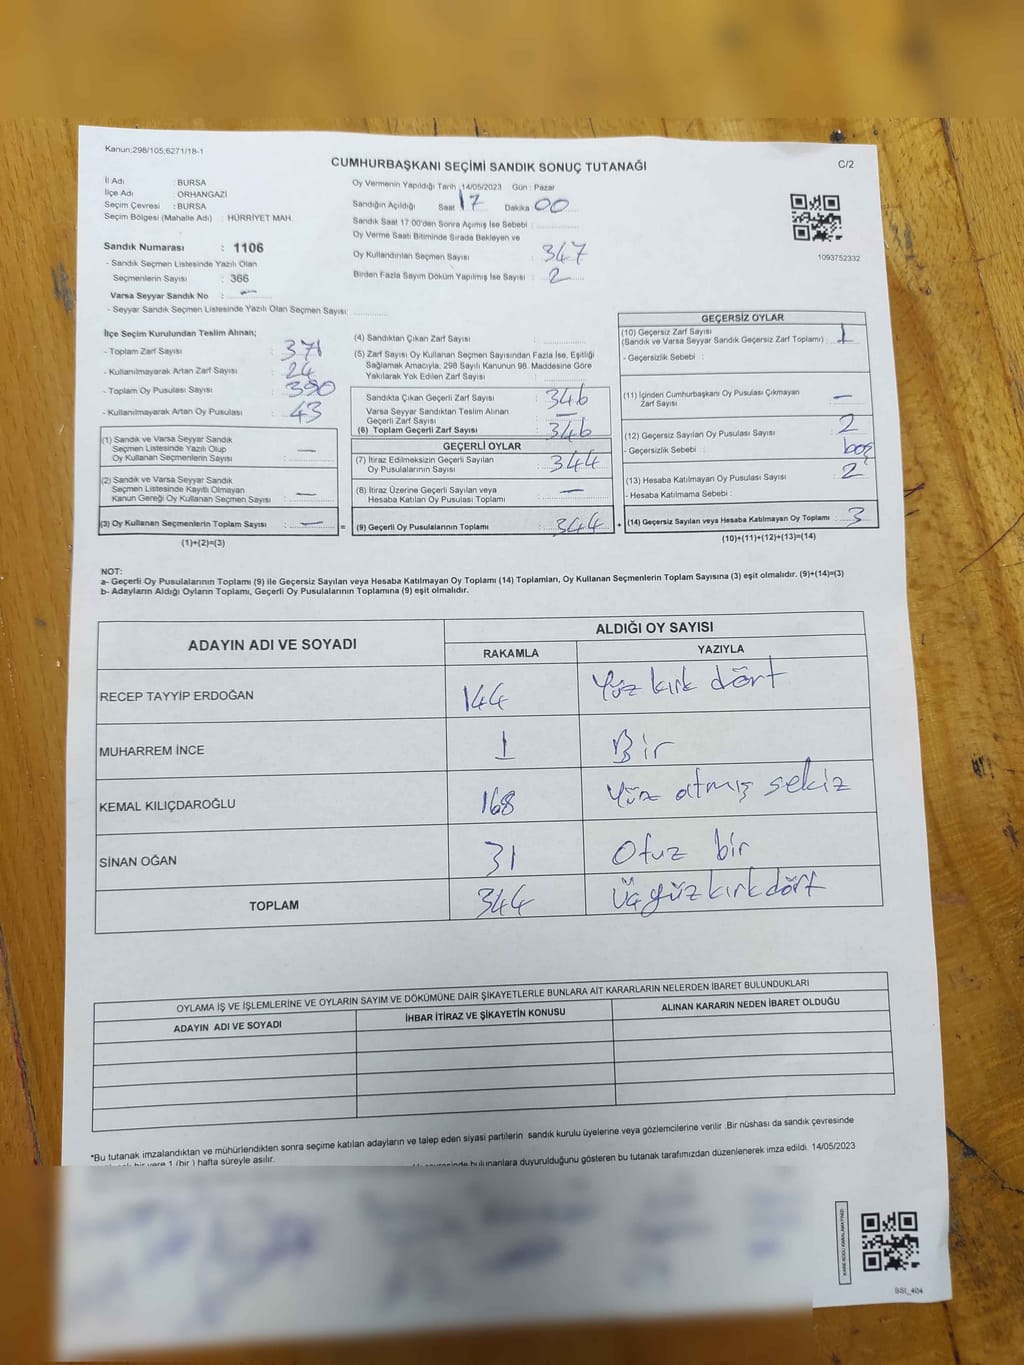 Kanun:298/105;6271/18-1
CUMHURBAŞKANI SEÇİMİ SANDIK SONUÇ TUTANAĞI
C/2
İl Adı : BURSA
İlçe Adı : ORHANGAZİ
Seçim Çevresi : BURSA
Seçim Bölgesi (Mahalle Adı) : HÜRRİYET MAH.
Sandık Numarası : 1106
- Sandık Seçmen Listesinde Yazılı Olan
Seçmenlerin Sayısı : 366
Varsa Seyyar Sandık No : —
- Seyyar Sandık Seçmen Listesinde Yazılı Olan Seçmen Sayısı:
Oy Vermenin Yapıldığı Tarih :14/05/2023 Gün : Pazar
Sandığın Açıldığı Saat 17 Dakika 00
Sandık Saat 17:00'den Sonra Açılmış İse Sebebi :
Oy Verme Saati Bitiminde Sırada Bekleyen ve
Oy Kullandırılan Seçmen Sayısı : 347
Birden Fazla Sayım Döküm Yapılmış İse Sayısı : 2
1093752332
İlçe Seçim Kurulundan Teslim Alınan;
- Toplam Zarf Sayısı : 371
- Kullanılmayarak Artan Zarf Sayısı : 24
- Toplam Oy Pusulası Sayısı : 390
- Kullanılmayarak Artan Oy Pusulası : 43
(1) Sandık ve Varsa Seyyar Sandık
Seçmen Listesinde Yazılı Olup
Oy Kullanan Seçmenlerin Sayısı : —
(2) Sandık ve Varsa Seyyar Sandık
Seçmen Listesinde Kayıtlı Olmayan
Kanun Gereği Oy Kullanan Seçmen Sayısı : —
(3) Oy Kullanan Seçmenlerin Toplam Sayısı : — =
(1)+(2)=(3)
(4) Sandıktan Çıkan Zarf Sayısı :
(5) Zarf Sayısı Oy Kullanan Seçmen Sayısından Fazla İse, Eşitliği
Sağlamak Amacıyla, 298 Sayılı Kanunun 98. Maddesine Göre
Yakılarak Yok Edilen Zarf Sayısı :
Sandıkta Çıkan Geçerli Zarf Sayısı : 346
Varsa Seyyar Sandıktan Teslim Alınan
Geçerli Zarf Sayısı : —
(6) Toplam Geçerli Zarf Sayısı : 346
GEÇERLİ OYLAR
(7) İtiraz Edilmeksizin Geçerli Sayılan
Oy Pusulalarının Sayısı : 344
(8) İtiraz Üzerine Geçerli Sayılan veya
Hesaba Katılan Oy Pusulası Toplamı : —
(9) Geçerli Oy Pusulalarının Toplamı : 344 +
GEÇERSİZ OYLAR
(10) Geçersiz Zarf Sayısı
(Sandık ve Varsa Seyyar Sandık Geçersiz Zarf Toplamı) : 1
- Geçersizlik Sebebi :
(11) İçinden Cumhurbaşkanı Oy Pusulası Çıkmayan
Zarf Sayısı : —
(12) Geçersiz Sayılan Oy Pusulası Sayısı : 2
- Geçersizlik Sebebi : boş
(13) Hesaba Katılmayan Oy Pusulası Sayısı : 2
- Hesaba Katılmama Sebebi :
(14) Geçersiz Sayılan veya Hesaba Katılmayan Oy Toplamı : 3
(10)+(11)+(12)+(13)=(14)
NOT:
a- Geçerli Oy Pusulalarının Toplamı (9) ile Geçersiz Sayılan veya Hesaba Katılmayan Oy Toplamı (14) Toplamları, Oy Kullanan Seçmenlerin Toplam Sayısına (3) eşit olmalıdır. (9)+(14)=(3)
b- Adayların Aldığı Oyların Toplamı, Geçerli Oy Pusulalarının Toplamına (9) eşit olmalıdır.
ADAYIN ADI VE SOYADI ALDIĞI OY SAYISI
RAKAMLA YAZIYLA
RECEP TAYYİP ERDOĞAN 144 Yüz kırk dört
MUHARREM İNCE 1 Bir
KEMAL KILIÇDAROĞLU 168 Yüz atmış sekiz
SİNAN OĞAN 31 Otuz bir
TOPLAM 344 Üçyüz kırk dört
OYLAMA İŞ VE İŞLEMLERİNE VE OYLARIN SAYIM VE DÖKÜMÜNE DAİR ŞİKAYETLERLE BUNLARA AİT KARARLARIN NELERDEN İBARET BULUNDUKLARI
ADAYIN ADI VE SOYADI İHBAR İTİRAZ VE ŞİKAYETİN KONUSU ALINAN KARARIN NEDEN İBARET OLDUĞU
*Bu tutanak imzalandıktan ve mühürlendikten sonra seçime katılan adayların ve talep eden siyasi partilerin sandık kurulu üyelerine veya gözlemcilerine verilir .Bir nüshası da sandık çevresinde
bir yere 1 (bir ) hafta süreyle asılır.
bulunanlara duyurulduğunu gösteren bu tutanak tarafımızdan düzenlenerek imza edildi. 14/05/2023
KARE KODU KARALAMAYINIZ!
SSI_404